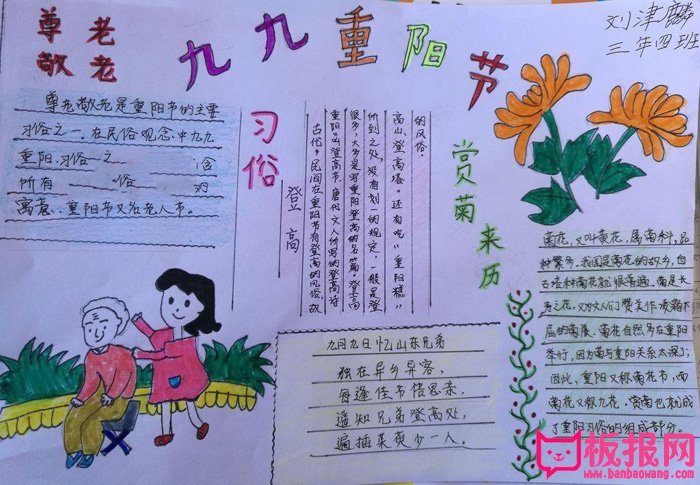 尊老
敬老
九九重阳节
刘津麟
三年四班
尊老敬老是重阳节的主要
习俗之一,在民俗观念中九九
重阳,习俗之 含
所有 俗 的
寓意.重阳节又沿老人节。
习俗
登高
古代,民间在重阳节有登高的风俗,故
重阳"叫登高节"。唐代文人所写的登高诗
很多,大多是写重阳登高的名篇。登高
所到之处,没有划一的规定,一般是登
高山、登高塔。还有吃“重阳糕”
的风俗。
赏菊来历
菊花,又叫黄花,属菊科,品
种繁多。我国是菊花的故乡,自
古培种菊花就很普遍。菊是长
寿之花,又为文人们赞美作凌霜不
屈的
菊花自然多在重阳
举行,因为菊与重阳关系太深了;
因此,重阳又称菊花节,而
菊花又称九花。赏菊也就成
了重阳习俗的组成部分。
九月九日忆山东兄弟
独在异乡异客,
每逢佳节倍思亲.
遥知兄弟登高处,
遍插茱萸少一人。
板报网
www.banbaowang.com